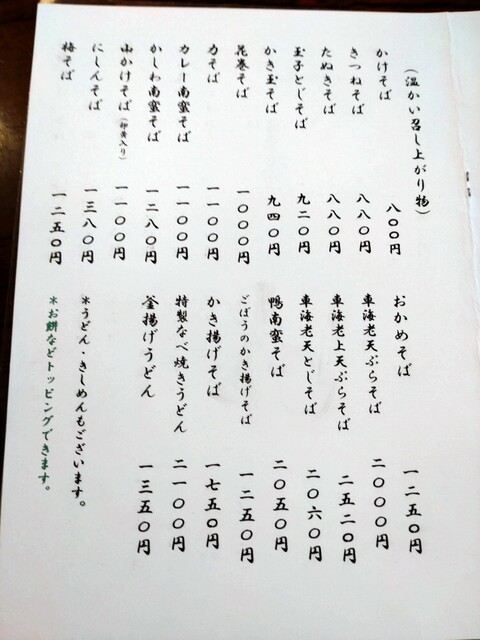 (温かい召し上がり物)
かけそば 八〇〇円
きつねそば 八八〇円
たぬきそば 八八〇円
玉子とじそば 九二〇円
かき玉そば 九四〇円
花巻そば 一〇〇〇円
力そば 一一〇〇円
カレー南蛮そば 一一〇〇円
かしわ南蛮そば 一二八〇円
山かけそば(卵黄入り) 一一〇〇円
にしんそば 一三八〇円
梅そば 一二五〇円
おかめそば 一二五〇円
車海老天ぷらそば 二〇〇〇円
車海老上天ぷらそば 二五二〇円
車海老天とじそば 二〇六〇円
鴨南蛮そば 二〇五〇円
ごぼうのかき揚げそば 一二五〇円
かき揚げそば 一七五〇円
特製なべ焼きうどん 二一〇〇円
釜揚げうどん 一三五〇円
*うどん・きしめんもございます。
*お餅などトッピングできます。